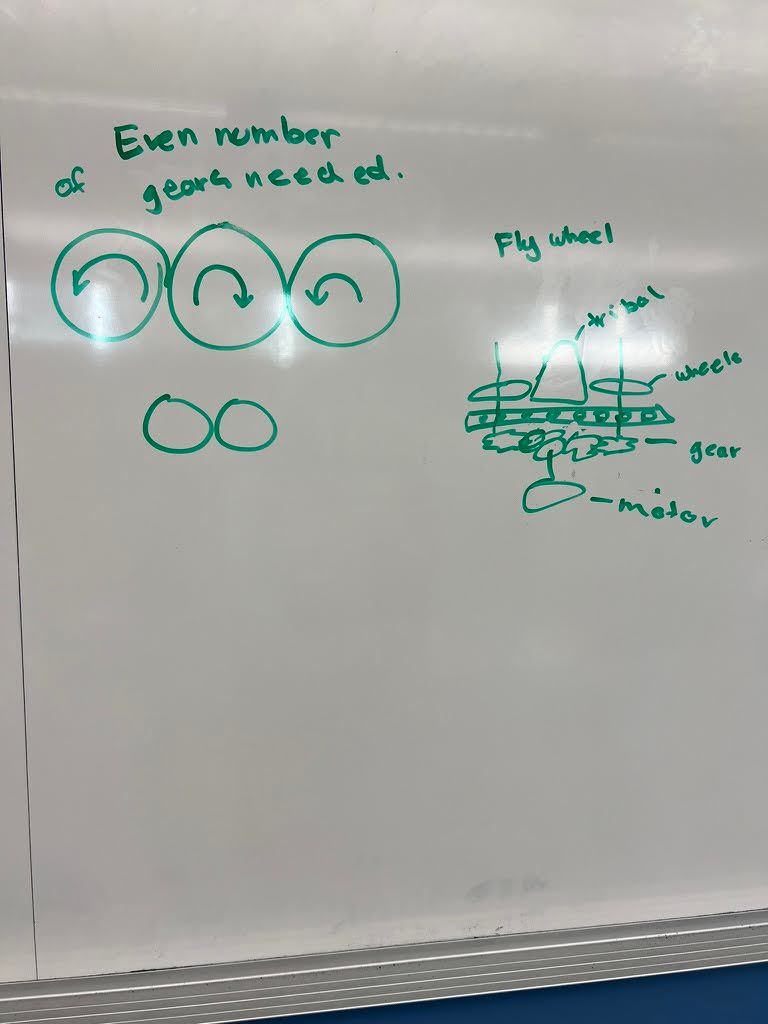 Even number
of gears needed.
Fly wheel
tribal
wheels
gear
motor